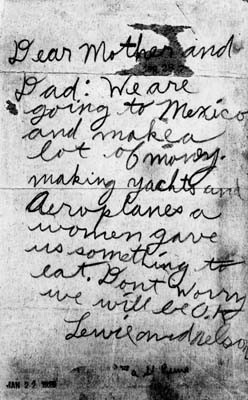 Dear Mother and
Dad: We are
going to Mexico
and make a
lot of money.
making yachts and
Aeroplanes a
women gave
us something to
eat. Dont worry
we will be O.K
Lewis and nelson
JAN 22